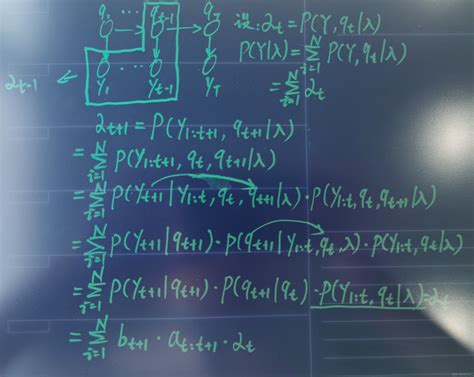 q₁ ... qt-1 qT
y₁ ... yt-1 yT
2t-1
记: 2t = P(Y, qt|λ)
P(Y|λ) = ∑ᵢ₌₁ᴺ P(Y, qt|λ)
= ∑ᵢ₌₁ᴺ 2t
2t+1 = P(Y1:t+1, qt+1|λ)
= ∑ᵢ₌₁ᴺ P(Y1:t+1, qt, qt+1|λ)
= ∑ᵢ₌₁ᴺ P(Yt+1|Y1:t, qt, qt+1|λ) · P(Y1:t, qt, qt+1|λ)
= ∑ᵢ₌₁ᴺ P(Yt+1|qt+1) · P(qt+1|Y1:t, qt, λ) · P(Y1:t, qt|λ)
= ∑ᵢ₌₁ᴺ P(Yt+1|qt+1) · P(qt+1|qt) · P(Y1:t, qt|λ)=2t
= ∑ᵢ₌₁ᴺ bt+1 · at:t+1 · 2t